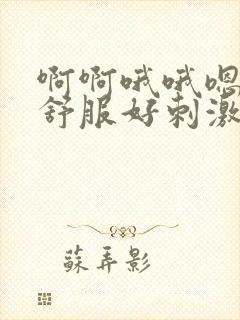 啊啊哦哦嗯
舒服好刺激
蘇弄影